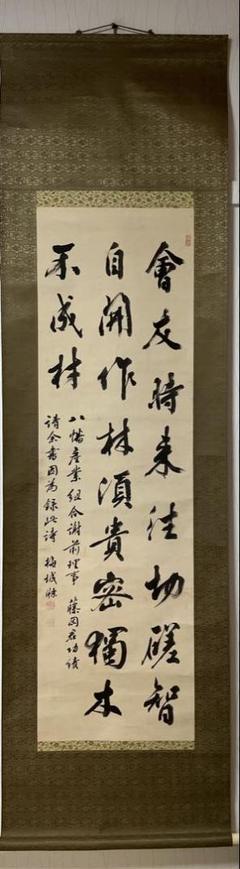 會友時来往切磋智
自開作林須貴密獨木
不成林
八幡産業組合謝前理事藤岡君功績
請余書因為録此詩 梅城